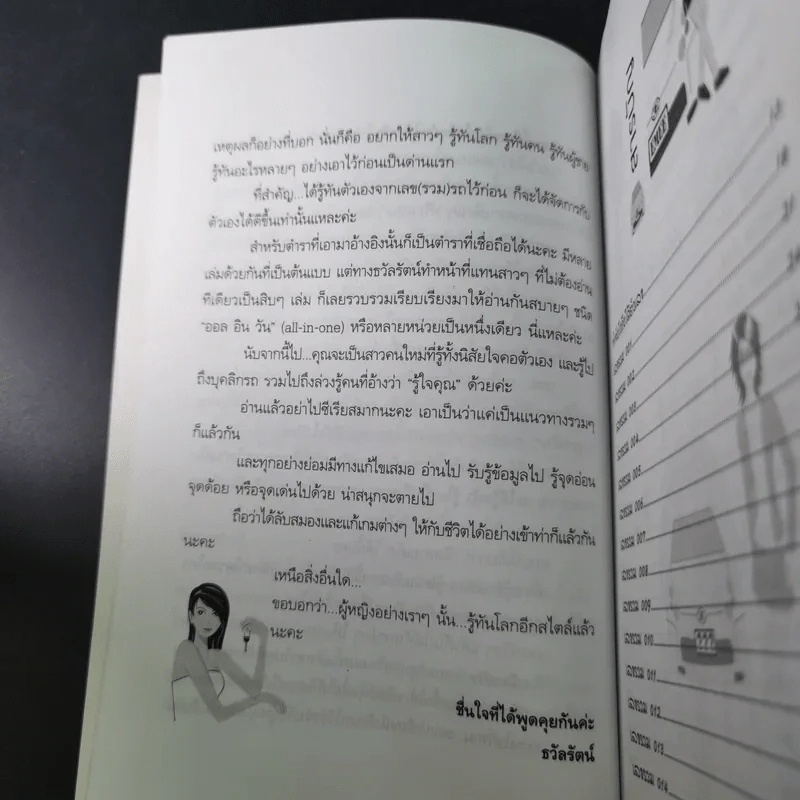 เหตุผลก็อย่างที่บอก นั่นก็คือ อยากให้สาวๆ รู้ทันโลก รู้ทันคน รู้ทันผู้ชาย
รู้ทันอะไรหลายๆ อย่างเอาไว้ก่อนเป็นด่านแรก
ที่สำคัญ...ได้รู้ทันตัวเองจากเลข(รวม)รถไว้ก่อน ก็จะได้จัดการกับ
ตัวเองได้ดีขึ้นเท่านั้นแหละค่ะ
สำหรับตำราที่เอามาอ้างอิงนั้นก็เป็นตำราที่เชื่อถือได้นะคะ มีหลาย
เล่มด้วยกันที่เป็นต้นแบบ แต่ทางธวัลรัตน์ทำหน้าที่แทนสาวๆ ที่ไม่ต้องอ่าน
ทีเดียวเป็นสิบๆ เล่ม ก็เลยรวบรวมเรียบเรียงมาให้อ่านกันสบายๆ ชนิด
"ออล อิน วัน" (all-in-one) หรือหลายหน่วยเป็นหนึ่งเดียว นี่แหละค่ะ
นับจากนี้ไป...คุณจะเป็นสาวคนใหม่ที่รู้ทั้งนิสัยใจคอตัวเอง และรู้ไป
ถึงบุคลิกรถ รวมไปถึงล่วงรู้คนที่อ้างว่า "รู้ใจคุณ" ด้วยค่ะ
อ่านแล้วอย่าไปซีเรียสมากนะคะ เอาเป็นว่าแค่เป็นแนวทางรวมๆ
ก็แล้วกัน
และทุกอย่างย่อมมีทางแก้ไขเสมอ อ่านไป รับรู้ข้อมูลไป รู้จุดอ่อน
จุดด้อย หรือจุดเด่นไปด้วย น่าสนุกจะตายไป
ถือว่าได้ลับสมองและแก้เกมต่างๆ ให้กับชีวิตได้อย่างเข้าท่าก็แล้วกัน
นะคะ
เหนือสิ่งอื่นใด...
ขอบอกว่า...ผู้หญิงอย่างเราๆ นั้น...รู้ทันโลกอีกสไตล์แล้ว
นะคะ
ชื่นใจที่ได้พูดคุยกันค่ะ
ธวัลรัตน์
สารบัญ
เลขรวม 001
เลขรวม 002
เลขรวม 003
เลขรวม 004
เลขรวม 005
เลขรวม 006
เลขรวม 007
เลขรวม 008
เลขรวม 009
เลขรวม 010
เลขรวม 011
เลขรวม 012
เลขรวม 013
เลขรวม 014